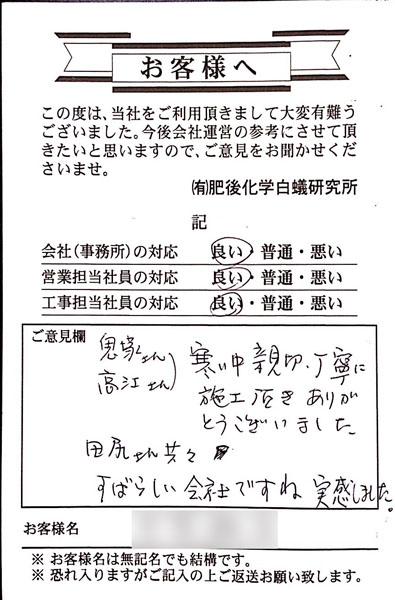 お客様へ
この度は、当社をご利用頂きまして大変有難う
ございました。今後会社運営の参考にさせて頂
きたいと思いますので、ご意見をお聞かせくだ
さいませ。
㈲肥後化学白蟻研究所
記
会社(事務所)の対応 良い・普通・悪い
営業担当社員の対応 良い・普通・悪い
工事担当社員の対応 良い・普通・悪い
ご意見欄
鬼塚さん
高江さん
寒い中親切、丁寧に
施工頂きありが
とうございました
田尻さん共々
すばらしい会社ですね 実感しました。
お客様名
※ お客様名は無記名でも結構です。
※ 恐れ入りますがご記入の上ご返送お願い致します。